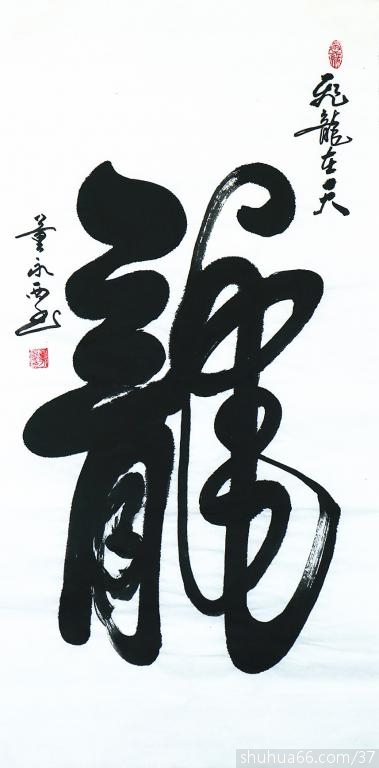 飛龍在天
龍
董永西書
shuhua66.com/37